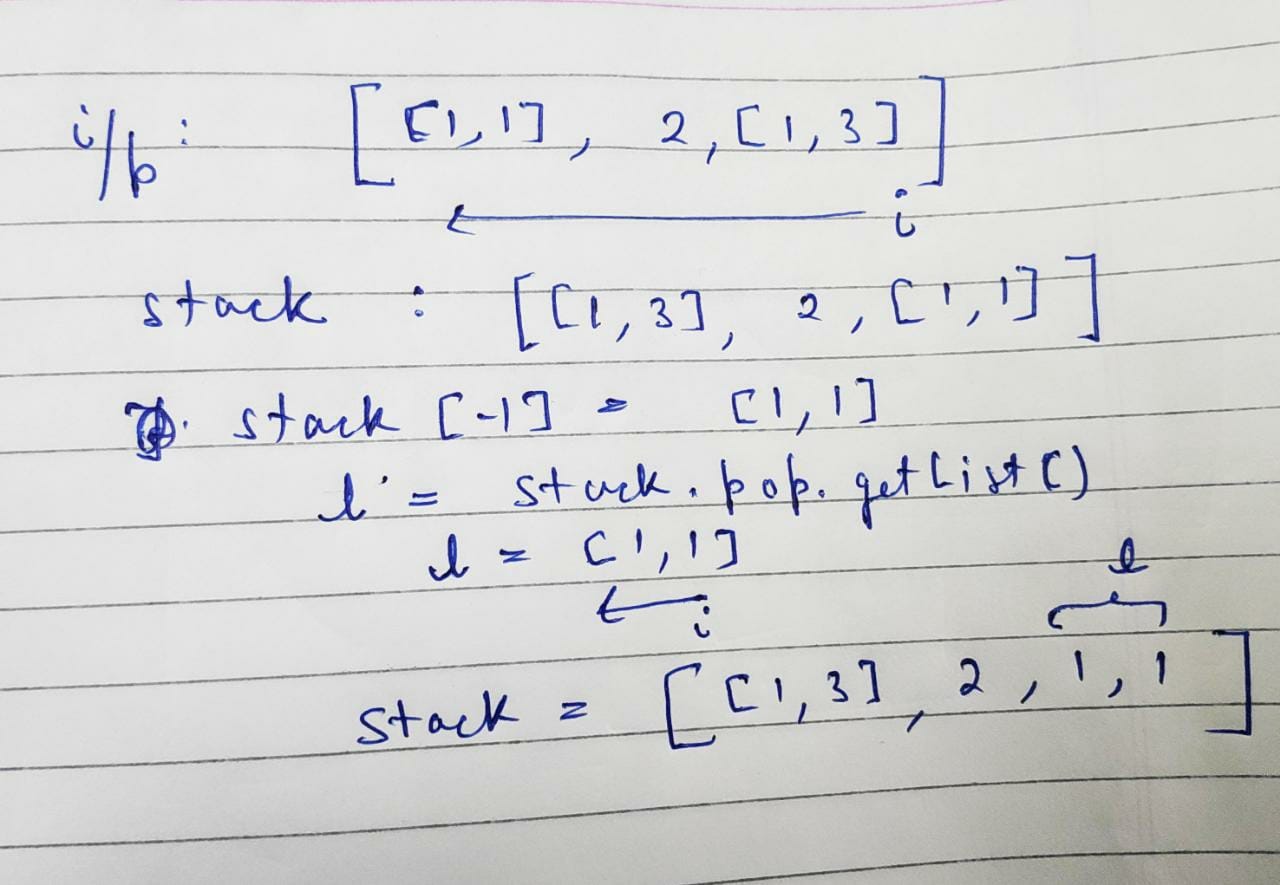 i/p: [[1,1], 2,[1,3]]
i
stack : [[1,3], 2,[1,1]]
stack [-1] = [1,1]
l = stack.pop.getList()
l = [1,1]
l
i
stack = [[1,3], 2, 1, 1]